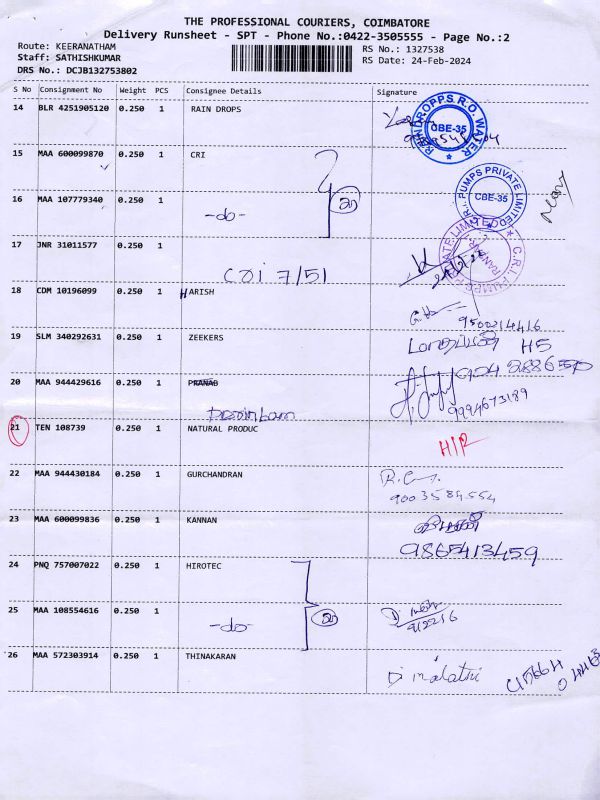 THE PROFESSIONAL COURIERS, COIMBATORE
Delivery Runsheet - SPT - Phone No.:0422-3505555 - Page No.:2
Route: KEERANATHAM
RS No.: 1327538
Staff: SATHISHKUMAR
RS Date: 24-Feb-2024
DRS No.: DCJB132753802
S No Consignment No Weight PCS Consignee Details Signature
14 BLR 4251905120 0.250 1 RAIN DROPS
RAINDROPPS R.O. WATER
CBE-35
15 MAA 600099870 0.250 1 CRI
PUMPS PRIVATE LIMITED
CBE-35
16 MAA 107779340 0.250 1
-do-
17 JNR 31011577 0.250 1
C.R.I. PUMPS PRIVATE LIMITED
18 CDM 10196099 0.250 1 HARISH
9500214416
19 SLM 340292631 0.250 1 ZEEKERS
H5
20 MAA 944429616 0.250 1 PRANAB
9994673189
21 TEN 108739 0.250 1 NATURAL PRODUC
22 MAA 944430184 0.250 1 GURCHANDRAN
9003584554
23 MAA 600099836 0.250 1 KANNAN
9865413459
24 PNQ 757007022 0.250 1 HIROTEC
25 MAA 108554616 0.250 1
-do-
26 MAA 572303914 0.250 1 THINAKARAN
D malathi